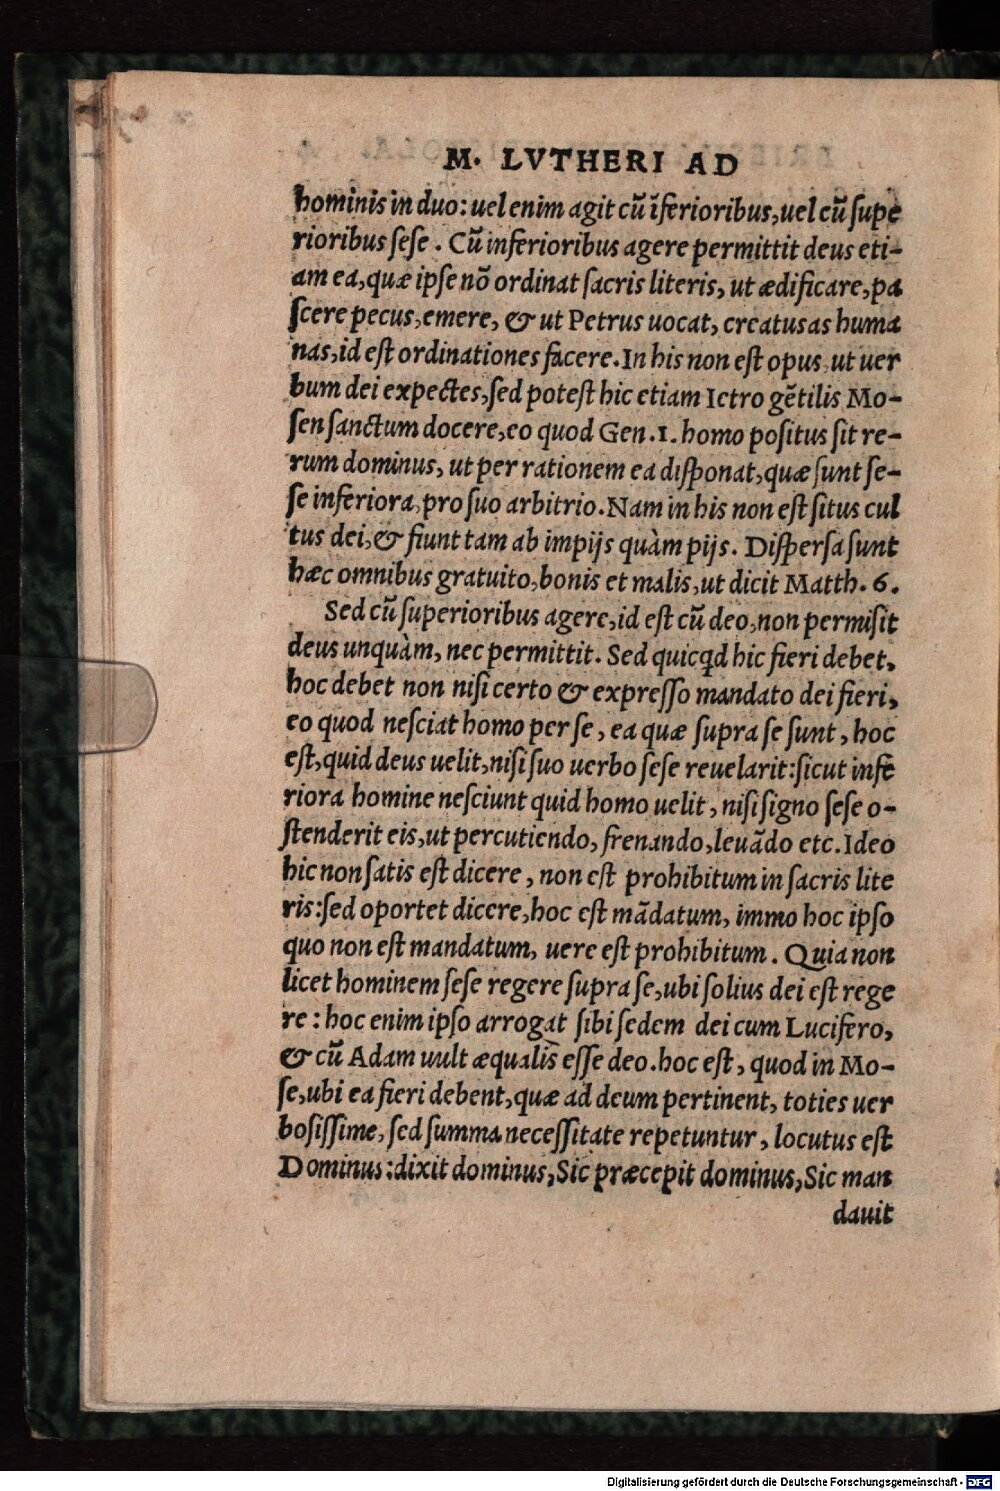 M. LVTHERI AD
hominis in duo: uel enim agit cũ ĩferioribus, uel cũ supe
rioribus sese. Cũ inferioribus agere permittit deus eti-
am ea, quæ ipse nõ ordinat sacris literis, ut ædificare, pa
scere pecus, emere, & ut Petrus uocat, creatusas huma
nas, id est ordinationes facere. In his non est opus ut uer
bum dei expectes, sed potest hic etiam Ietro gẽtilis Mo-
sen sanctum docere, eo quod Gen. 1. homo positus sit re-
rum dominus, ut per rationem ea disponat, quæ sunt se-
se inferiora, pro suo arbitrio. Nam in his non est situs cul
tus dei, & fiunt tam ab impijs quàm pijs. Dispersa sunt
hæc omnibus gratuito, bonis et malis, ut dicit Matth. 6.
Sed cũ superioribus agere, id est cũ deo, non permisit
deus unquàm, nec permittit. Sed quicqd hic fieri debet,
hoc debet non nisi certo & expresso mandato dei fieri,
eo quod nesciat homo per se, ea quæ supra se sunt, hoc
est, quid deus uelit, nisi suo uerbo sese reuelarit: sicut infe
riora homine nesciunt quid homo uelit, nisi signo sese o-
stenderit eis, ut percutiendo, frenando, leuãdo etc. Ideo
hic non satis est dicere, non est prohibitum in sacris lite
ris: sed oportet dicere, hoc est mãdatum, immo hoc ipso
quo non est mandatum, uere est prohibitum. Quia non
licet hominem sese regere supra se, ubi solius dei est rege
re: hoc enim ipso arrogat sibi sedem dei cum Lucifero,
& cũ Adam uult æqualis esse deo. hoc est, quod in Mo-
se, ubi ea fieri debent, quæ ad deum pertinent, toties uer
bosissime, sed summa necessitate repetuntur, locutus est
Dominus: dixit dominus, Sic præcepit dominus, Sic man
dauit
Digitalisierung gefördert durch die Deutsche Forschungsgemeinschaft - DFG